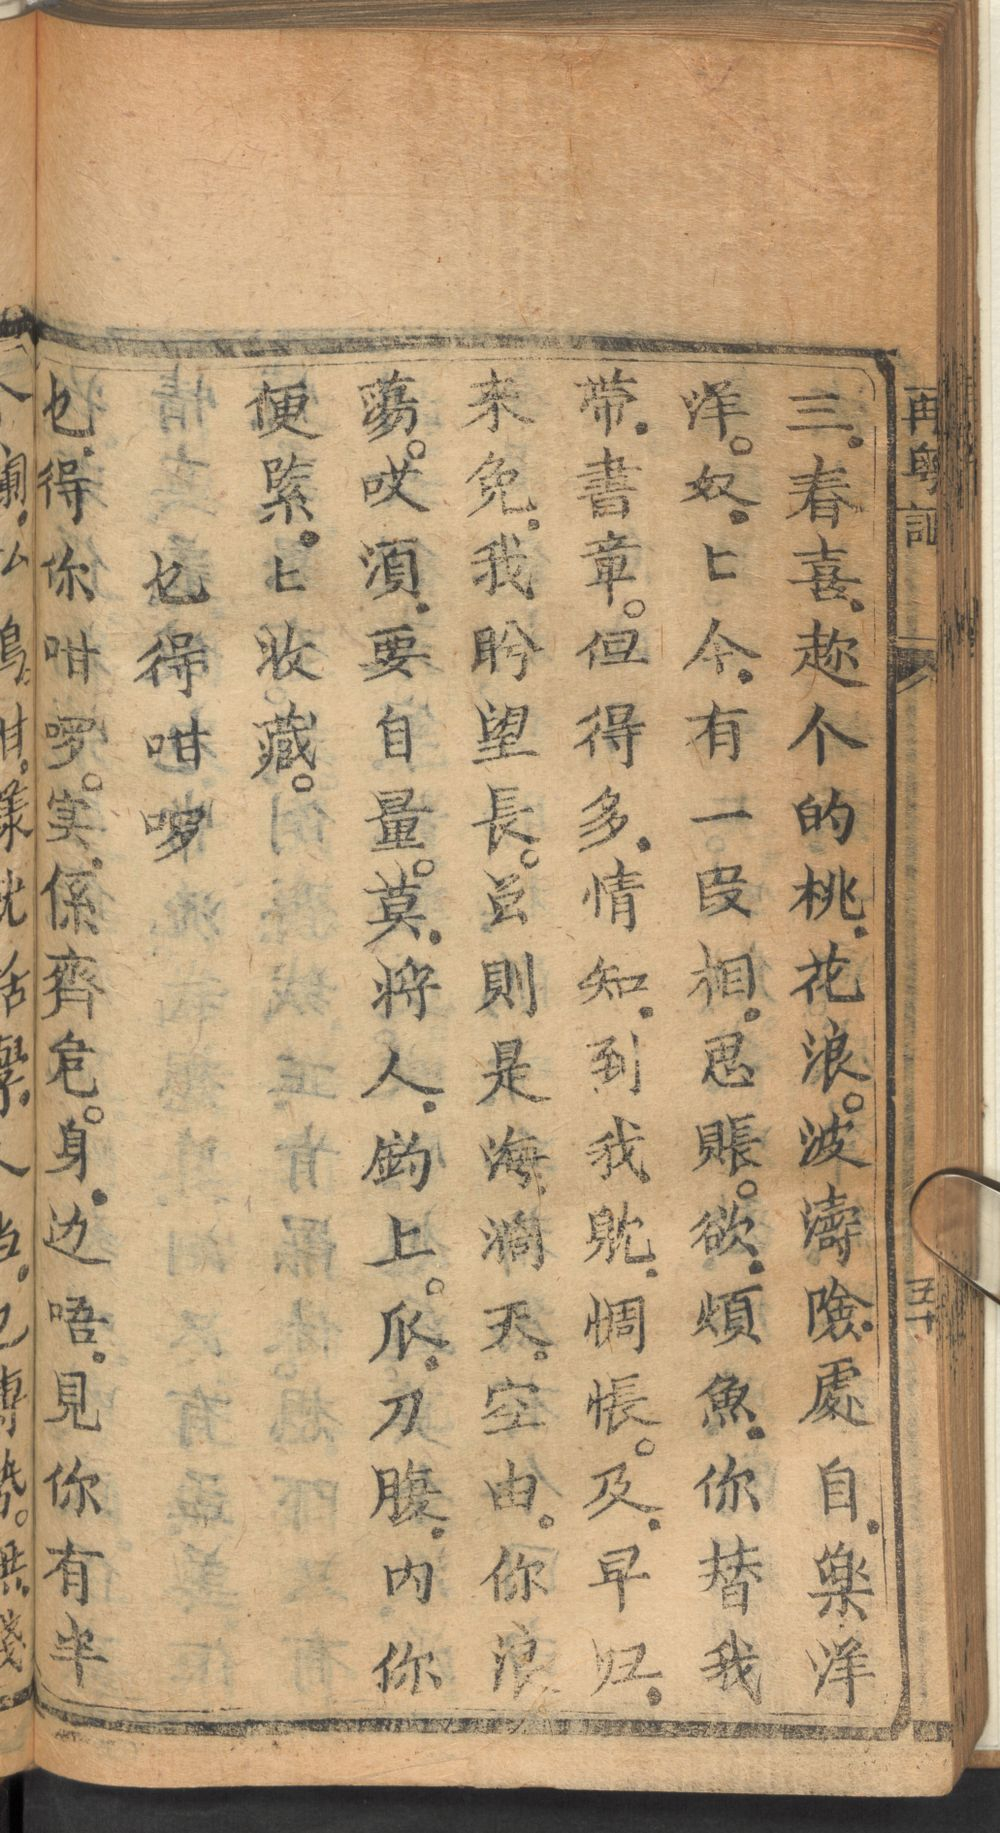 再粵謳
五十
三春喜趂个的桃花浪。波濤險處自樂洋
洋。奴匕今有一叚相思賬。欲煩魚你替我
帶書章。但得多情知到我躭惆悵。及早归
来免我盼望長。呂則是海濶天空由你浪
蕩。哎須要自量。莫將人鈎上。瓜刀腹内你
便緊匕收藏。
乜得咁啰
乜得你咁啰。実係齊危。身边唔見你有半